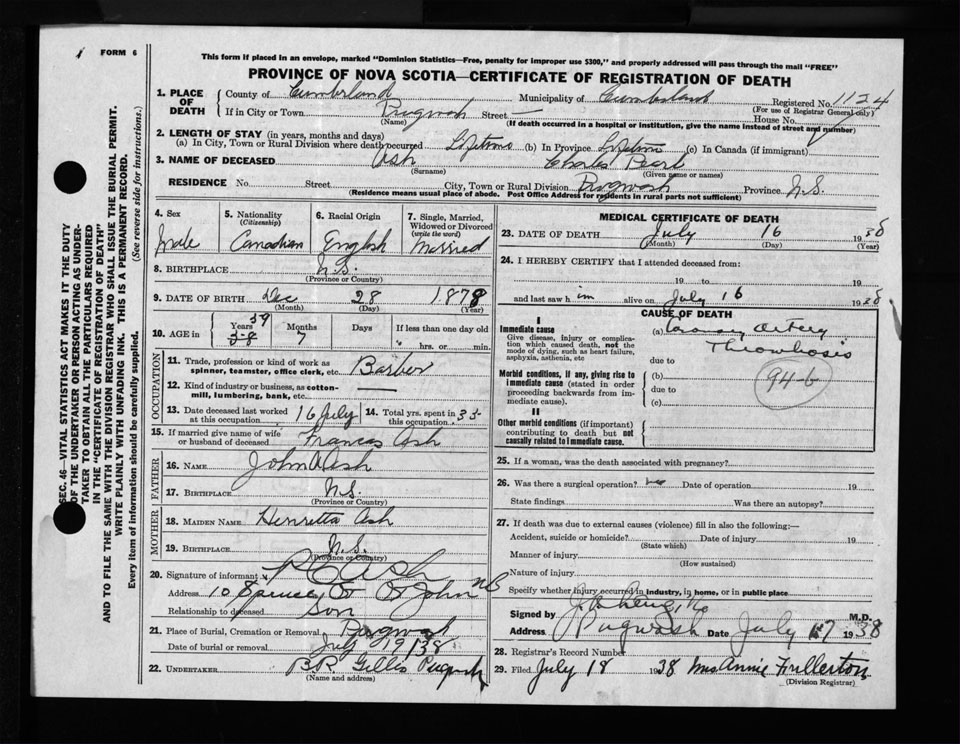 FORM 6
This form if placed in an envelope, marked "Dominion Statistics—Free, penalty for improper use $300," and properly addressed will pass through the mail "FREE"
PROVINCE OF NOVA SCOTIA—CERTIFICATE OF REGISTRATION OF DEATH
1. PLACE OF DEATH County of Cumberland Municipality of Cumberland Registered No. 1124
(For use of Registrar General only)
If in City or Town Pugwash Street — House No.
(Name) (If death occurred in a hospital or institution, give the name instead of street and number)
2. LENGTH OF STAY (in years, months and days)
(a) In City, Town or Rural Division where death occurred Lifetime (b) In Province Lifetime (c) In Canada (if immigrant)
3. NAME OF DECEASED Ash Charles Pearl
(Surname) (Given name or names)
RESIDENCE No. Street City, Town or Rural Division Pugwash Province N.S.
(Residence means usual place of abode. Post Office Address for residents in rural parts not sufficient)
4. Sex 5. Nationality (Citizenship) 6. Racial Origin 7. Single, Married, Widowed or Divorced (write the word)
male Canadian English Married
8. BIRTHPLACE N.S.
(Province or Country)
9. DATE OF BIRTH Dec 28 1878
(Month) (Day) (Year)
10. AGE in Years Months Days If less than one day old
59
58 7 hrs. or min.
OCCUPATION
11. Trade, profession or kind of work as spinner, teamster, office clerk, etc. Barber
12. Kind of industry or business, as cotton-mill, lumbering, bank, etc. —
13. Date deceased last worked at this occupation 16 July 14. Total yrs. spent in this occupation 35
15. If married give name of wife or husband of deceased Frances Ash
FATHER
16. NAME John A Ash
17. BIRTHPLACE N.S.
(Province or Country)
MOTHER
18. MAIDEN NAME Henretta Ash
19. BIRTHPLACE N.S.
(Province or Country)
20. Signature of informant Ash
Address 10 Spruce St St John NB
Relationship to deceased Son
21. Place of Burial, Cremation or Removal Pugwash
Date of burial or removal July 19/38
22. UNDERTAKER B.R. Gillis Pugwash
(Name and address)
MEDICAL CERTIFICATE OF DEATH
23. DATE OF DEATH July 16 1938
(Month) (Day) (Year)
24. I HEREBY CERTIFY that I attended deceased from:
19 to 19
and last saw h im alive on July 16 1938
CAUSE OF DEATH
I
Immediate cause (a) Coronary Artery
Give disease, injury or complication which caused death, not the mode of dying, such as heart failure, asphyxia, asthenia, etc Thrombosis
due to
Morbid conditions, if any, giving rise to immediate cause (stated in order proceeding backwards from immediate cause). (b) 94-b
due to
(c)
II
Other morbid conditions (if important) contributing to death but not causally related to immediate cause.
25. If a woman, was the death associated with pregnancy?
26. Was there a surgical operation? no Date of operation 19
State findings Was there an autopsy?
27. If death was due to external causes (violence) fill in also the following:—
Accident, suicide or homicide? Date of injury 19
(State which)
Manner of injury
(How sustained)
Nature of injury
Specify whether injury occurred in industry, in home, or in public place
Signed by M.D.
Address Pugwash Date July 17 1938
28. Registrar's Record Number
29. Filed July 18 1938 Mrs Annie Fullerton
(Division Registrar)
SEC. 46—VITAL STATISTICS ACT MAKES IT THE DUTY
OF THE UNDERTAKER OR PERSON ACTING AS UNDER-
TAKER TO OBTAIN ALL THE PARTICULARS REQUIRED
IN THE "CERTIFICATE OF REGISTRATION OF DEATH"
AND TO FILE THE SAME WITH THE DIVISION REGISTRAR WHO SHALL ISSUE THE BURIAL PERMIT.
WRITE PLAINLY WITH UNFADING INK. THIS IS A PERMANENT RECORD.
Every item of information should be carefully supplied. (See reverse side for instructions.)